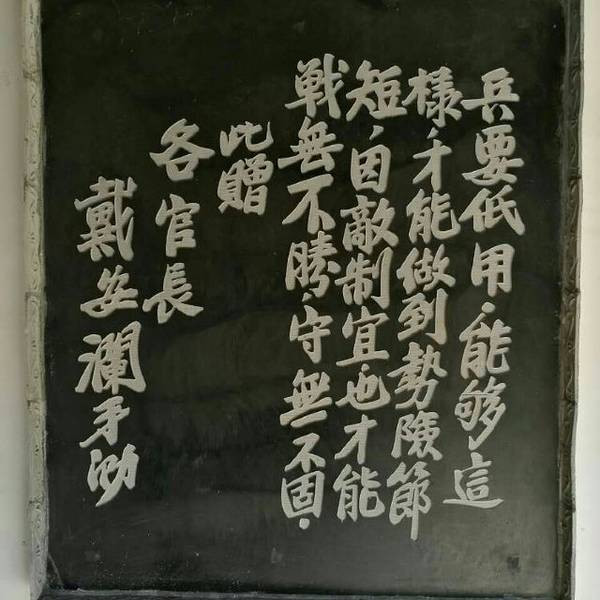 兵要低用，能够這
樣，才能做到勢險節
短，因敵制宜也才能
戰無不勝，守無不固。
此贈
各官長
戴安瀾手泐